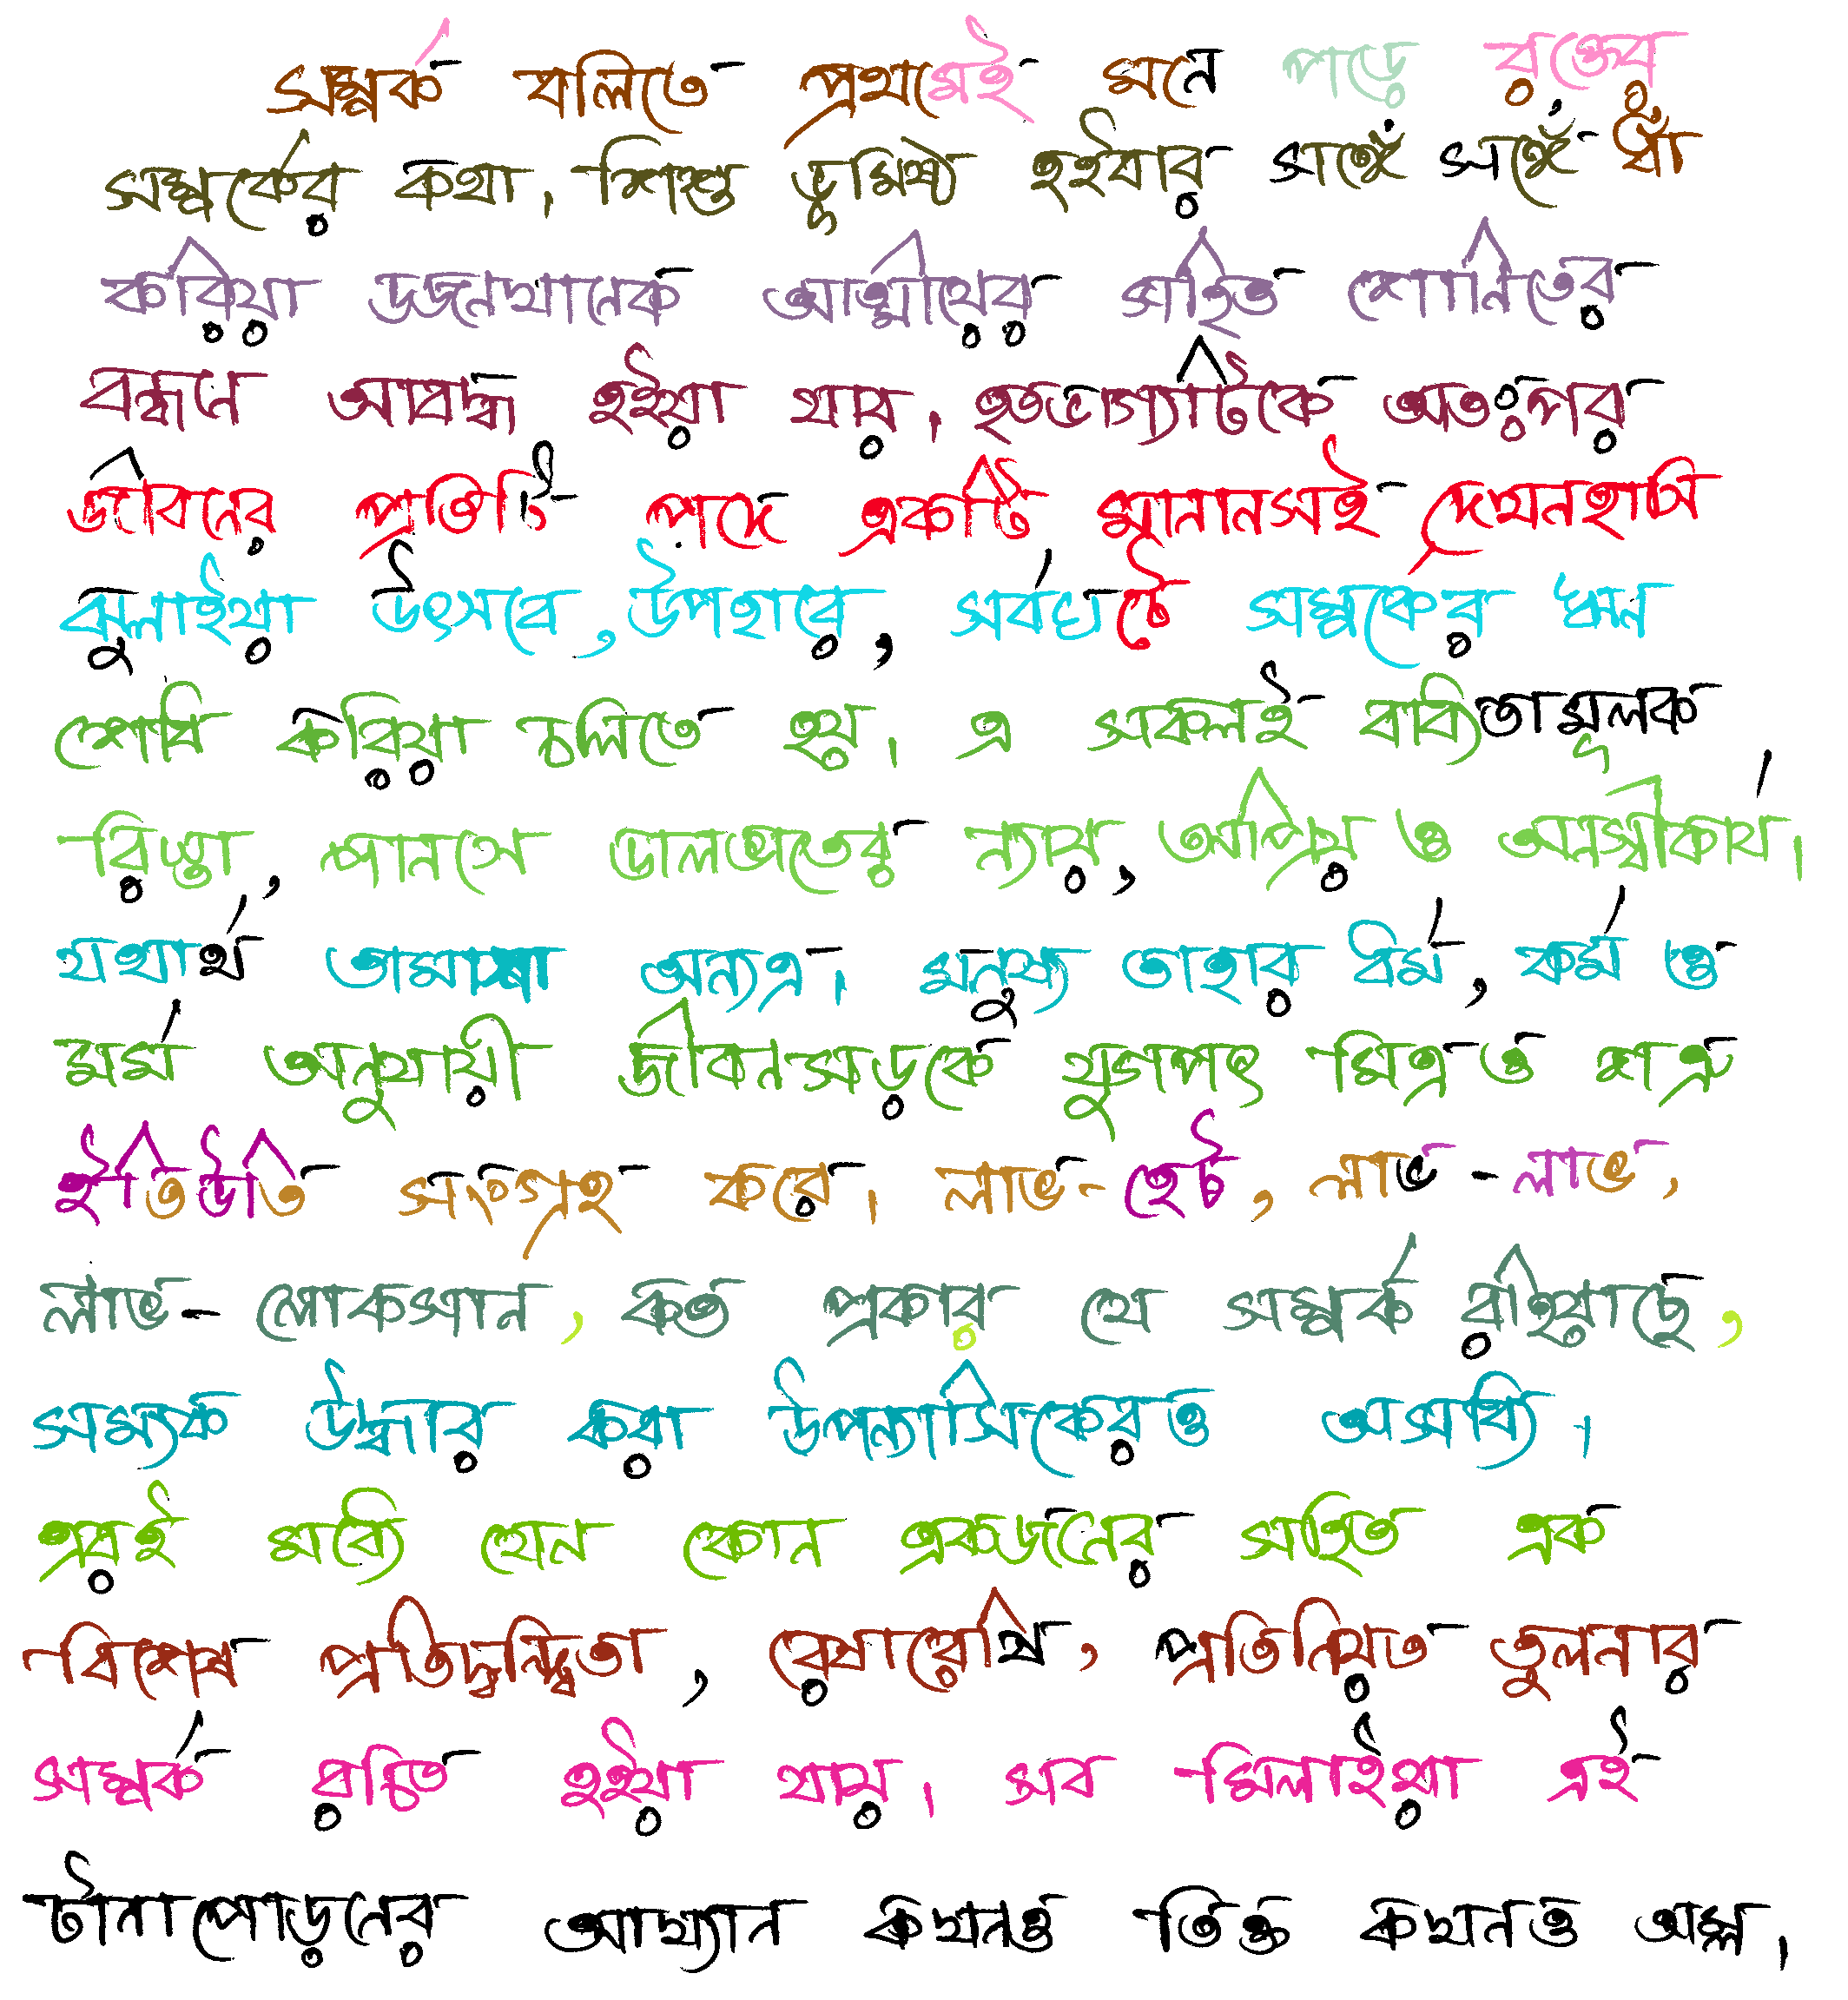 সম্পর্ক বলিতে প্রথমেই মনে পড়ে রক্তের
সম্পর্কের কথা। শিশু ভূমিষ্ঠ হইবার সঙ্গেঁ সঙ্গেঁ ধাঁ
করিয়া ডজনখানেক আত্মীয়ের সহিত শোনিতের
বন্ধনে আবদ্ধ হইয়া যায়। হতভাগ্যটিকে অতঃপর
জীবনের প্রতিটি পদে একটি মানানসই দেখনহাসি
ঝুলাইয়া উৎসবে, উপহারে, সর্বঘটে সম্পর্কের ঋন
শোধ করিয়া চলিতে হয়। এ সকলই বাধ্যতামূলক,
রিক্তা, পানসে ডালভাতের ন্যায়, অপ্রিয় ও অনস্বীকার্য।
যথার্থ তামাশা অন্যত্র। মনুষ্য তাহার ধর্ম, কর্ম ও
মর্ম অনুযায়ী জীবন-সড়কে যুগপৎ মিত্র ও শত্রু
ইতিউতি সংগ্রহ করে। লাভ-হেট, লাভ-লাভ,
লাভ-লোকসান, কত প্রকার যে সম্পর্ক রহিয়াছে,
সম্যক উদ্ধার করা উপন্যাসিকেরও অসাধ্য।
এরই মধ্যে হেন কোন একজনের সহিত এক
বিশেষ প্রতিদ্বন্দ্বিতা, রেষারেষি, প্রতিনিয়ত তুলনার
সম্পর্ক রচিত হইয়া যায়। সব মিলাইয়া এই
টানাপোড়নের আখ্যান কখনও তিক্ত কখনও অম্ল।